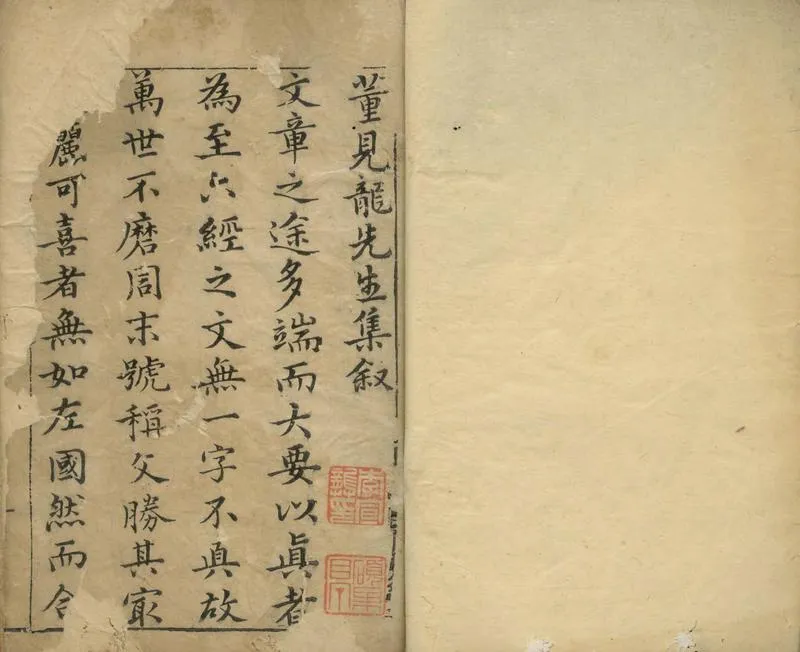 董見龍先生集叙
文章之途多端而大要以眞者
為至六經之文無一字不真故
萬世不磨周末號稱文勝其㝡
麗可喜者無如左國然而令